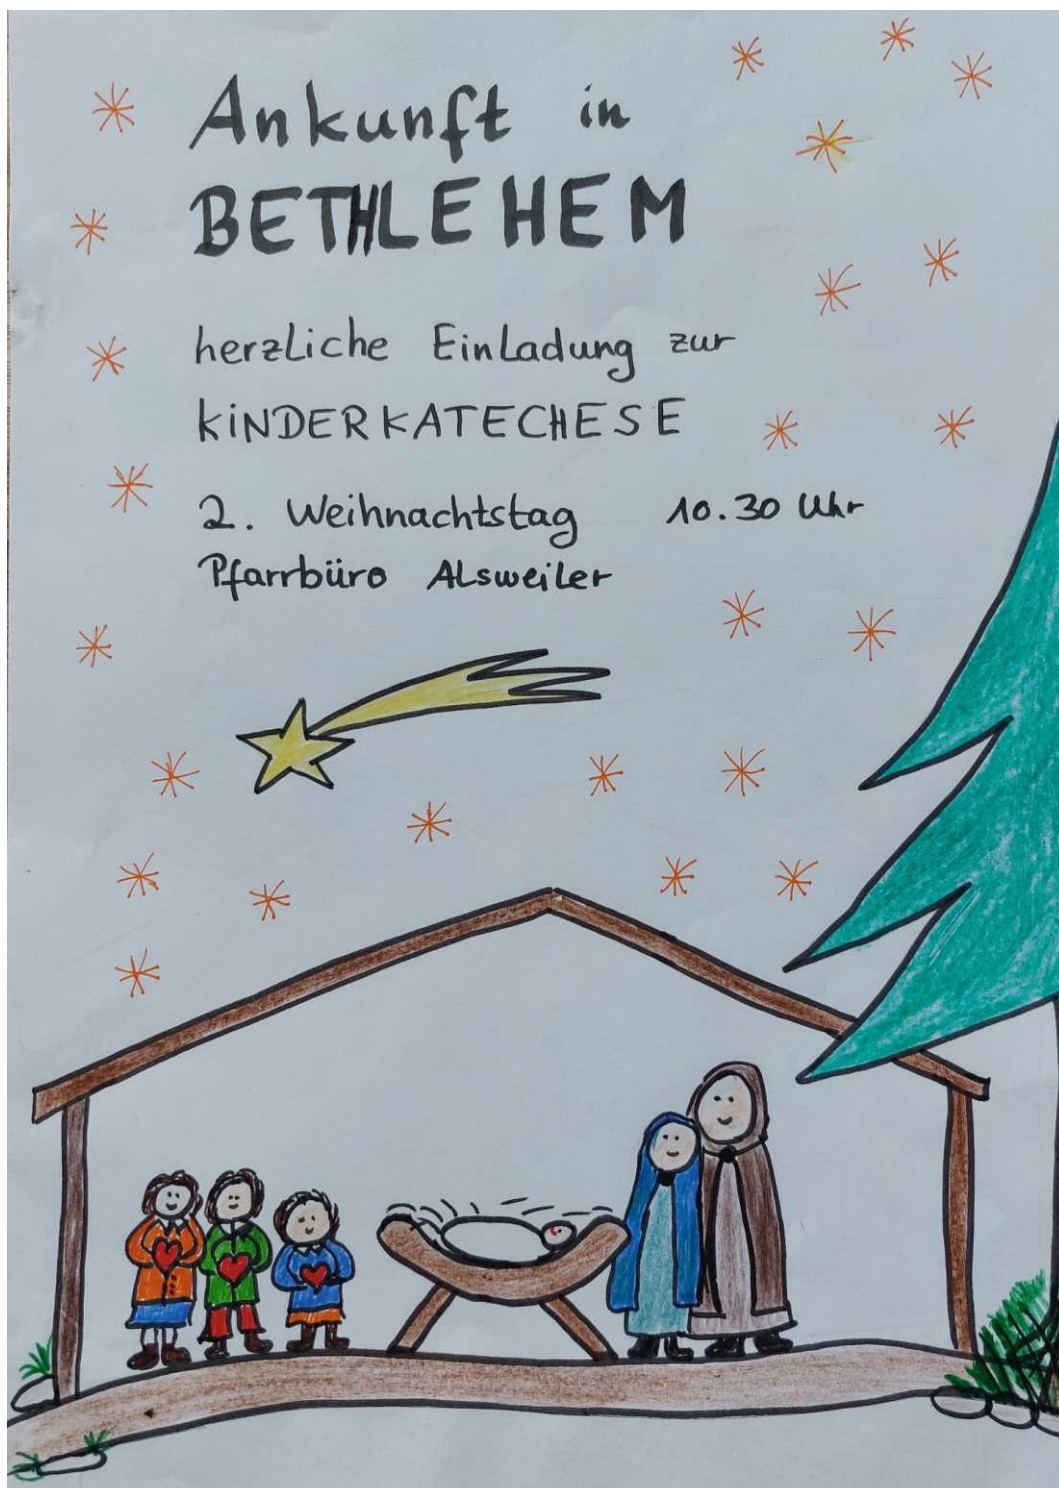 Ankunft in
BETHLEHEM
herzliche Einladung zur
KINDERKATECHESE
2. Weihnachtstag 10.30 Uhr
Pfarrbüro Alsweiler